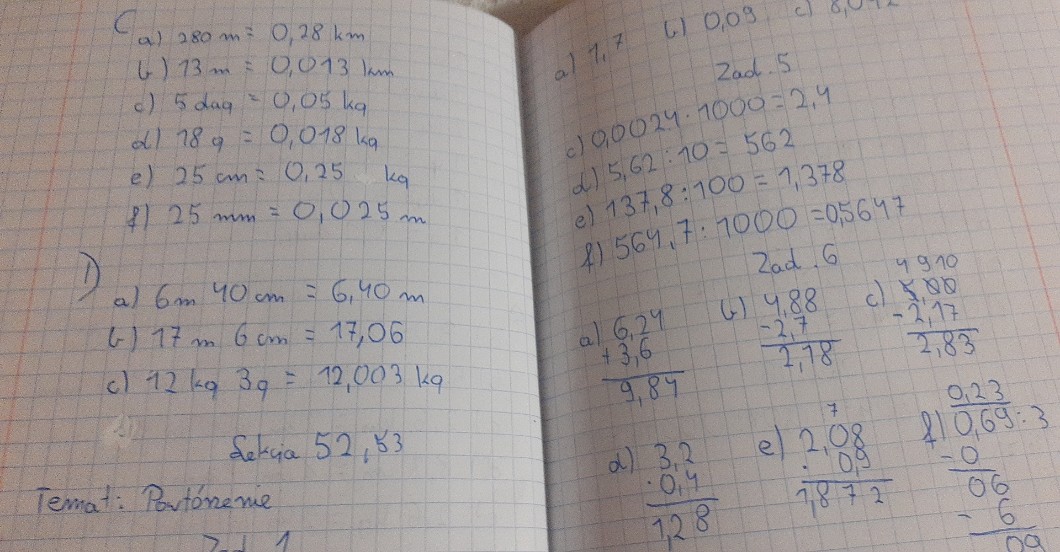 C
a) 280 m = 0,28 km
b) 13 m = 0,013 km
c) 5 dag = 0,05 kg
d) 18 g = 0,018 kg
e) 25 cm = 0,25 kg
f) 25 mm = 0,025 m
D
a) 6m 40 cm = 6,40 m
b) 17 m 6 cm = 17,06
c) 12 kg 3g = 12,003 kg
Lekcja 52,53
Temat: Powtórzenie
Zad. 1
a) 1,7 b) 0,09 c) 8,042
Zad. 5
c) 0,0024 · 1000 = 2,4
d) 5,62 : 10 = 562
e) 137,8 : 100 = 1,378
f) 564,7 : 1000 = 0,5647
Zad. 6
a) 6,24
+ 3,6
9,84
b) 4,88
- 2,7
2,18
4 9 10
c) 5,00
- 2,17
2,83
d) 3,2
· 0,4
1,28
7
e) 2,08
· 0,9
1,872
0,23
f) 0,69 : 3
- 0
06
- 6
09